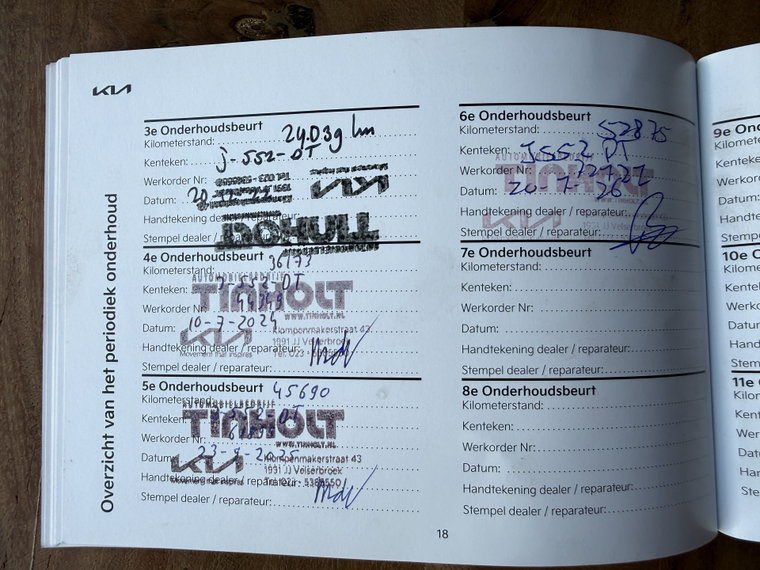 KIA
Overzicht van het periodiek onderhoud
3e Onderhoudsbeurt
Kilometerstand: 24.039 km
Kenteken: J-552-DT
Werkorder Nr:
Datum: 20
KIA
Handtekening dealer / reparateur:
Stempel dealer / reparateur:
4e Onderhoudsbeurt
Kilometerstand: 36173
AUTOMOBIELBEDRIJF
Kenteken: J-552-DT
TIMHOLT
Werkorder Nr:
WWW.TIMHOLT.NL
Datum: 10-7-2024
Klompenmakerstraat 43
KIA
1991 JJ Velserbroek
Handtekening dealer / reparateur:
Movement that inspires
Tel. 023 -
Stempel dealer / reparateur:
5e Onderhoudsbeurt
Kilometerstand: 45690
AUTOMOBIELBEDRIJF
Kenteken:
TIMHOLT
Werkorder Nr:
WWW.TIMHOLT.NL
Datum:
Klompenmakerstraat 43
KIA
1991 JJ Velserbroek
Handtekening dealer / reparateur:
Movement that inspires
Stempel dealer / reparateur:
6e Onderhoudsbeurt
Kilometerstand: 52875
AUTOMOBIELBEDRIJF
Kenteken: J552 DT
Werkorder Nr:
Datum: 20-7-26
KIA
Handtekening dealer / reparateur:
Stempel dealer / reparateur:
7e Onderhoudsbeurt
Kilometerstand:
Kenteken:
Werkorder Nr:
Datum:
Handtekening dealer / reparateur:
Stempel dealer / reparateur:
8e Onderhoudsbeurt
Kilometerstand:
Kenteken:
Werkorder Nr:
Datum:
Handtekening dealer / reparateur:
Stempel dealer / reparateur:
18
9e On
Kilomete
Kenteke
Werkor
Datum:
Handte
Stempe
10e O
Kilome
Kente
Werk
Datu
Hand
Stem
11e
Kilo
Ken
We
Da
Ha
St